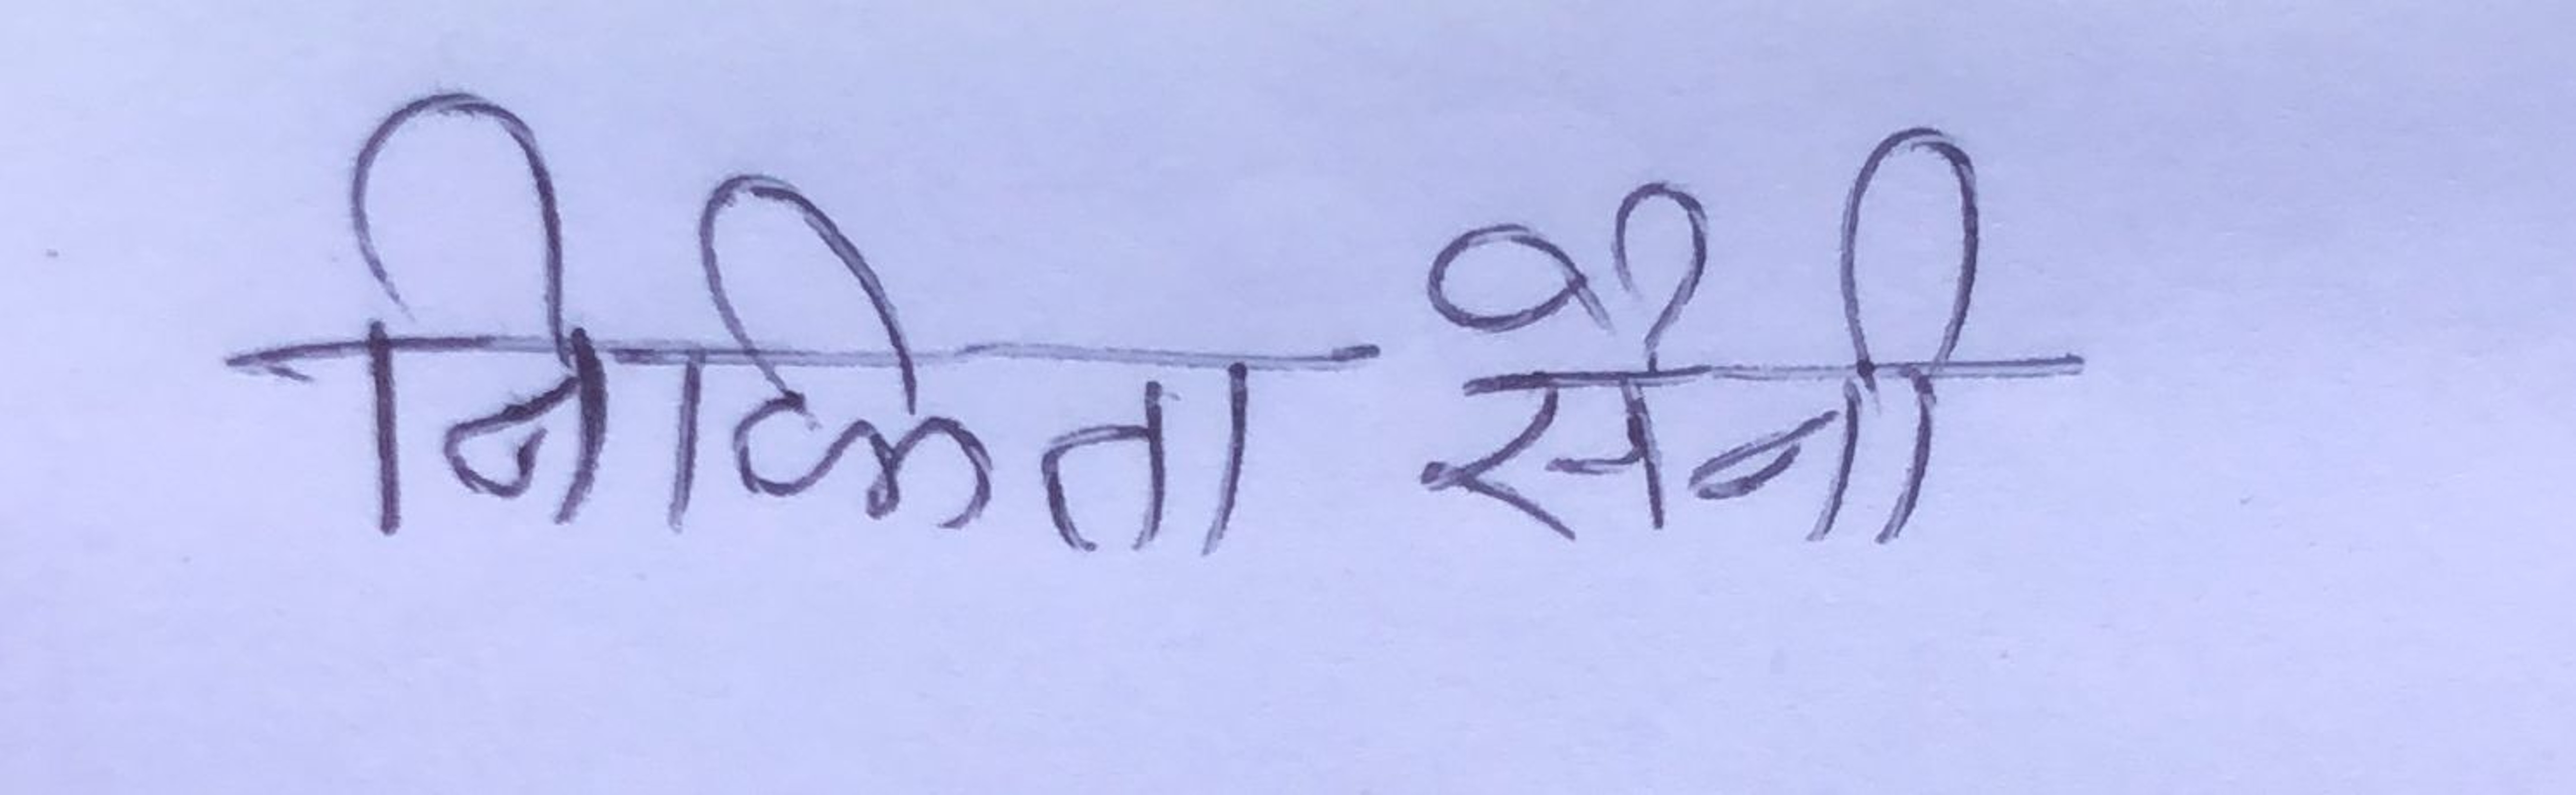 निकिता सैनी